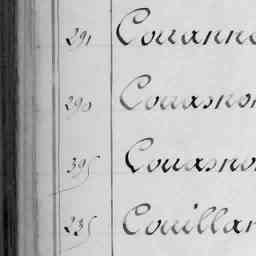 291 Couanne
290 Couasnon
395 Couasno
235 Couillar